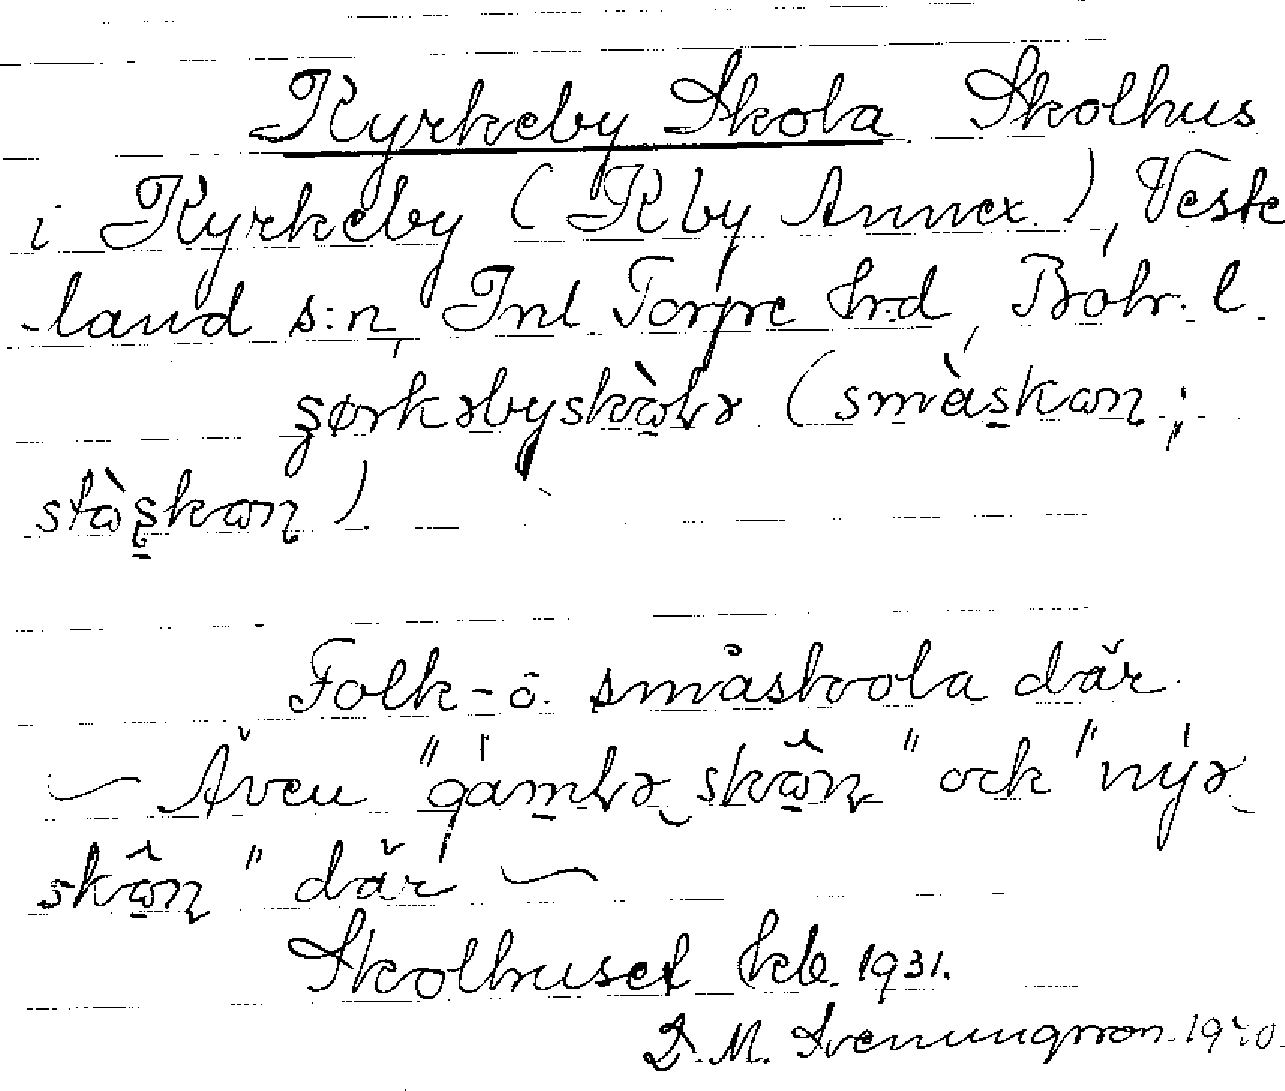 Kyrkeby Skola Skolhus
i Kyrkeby (K by Annex), Veste
-land s:n, Inl Torpe hrd, Boh. l.
(småskan;
Folk- o. småskola där.
– Även "gamla skôn" ock "nýa
skôn" där –
Skolhuset Ekb. 1931.
D. M. Svenungsson 1940.